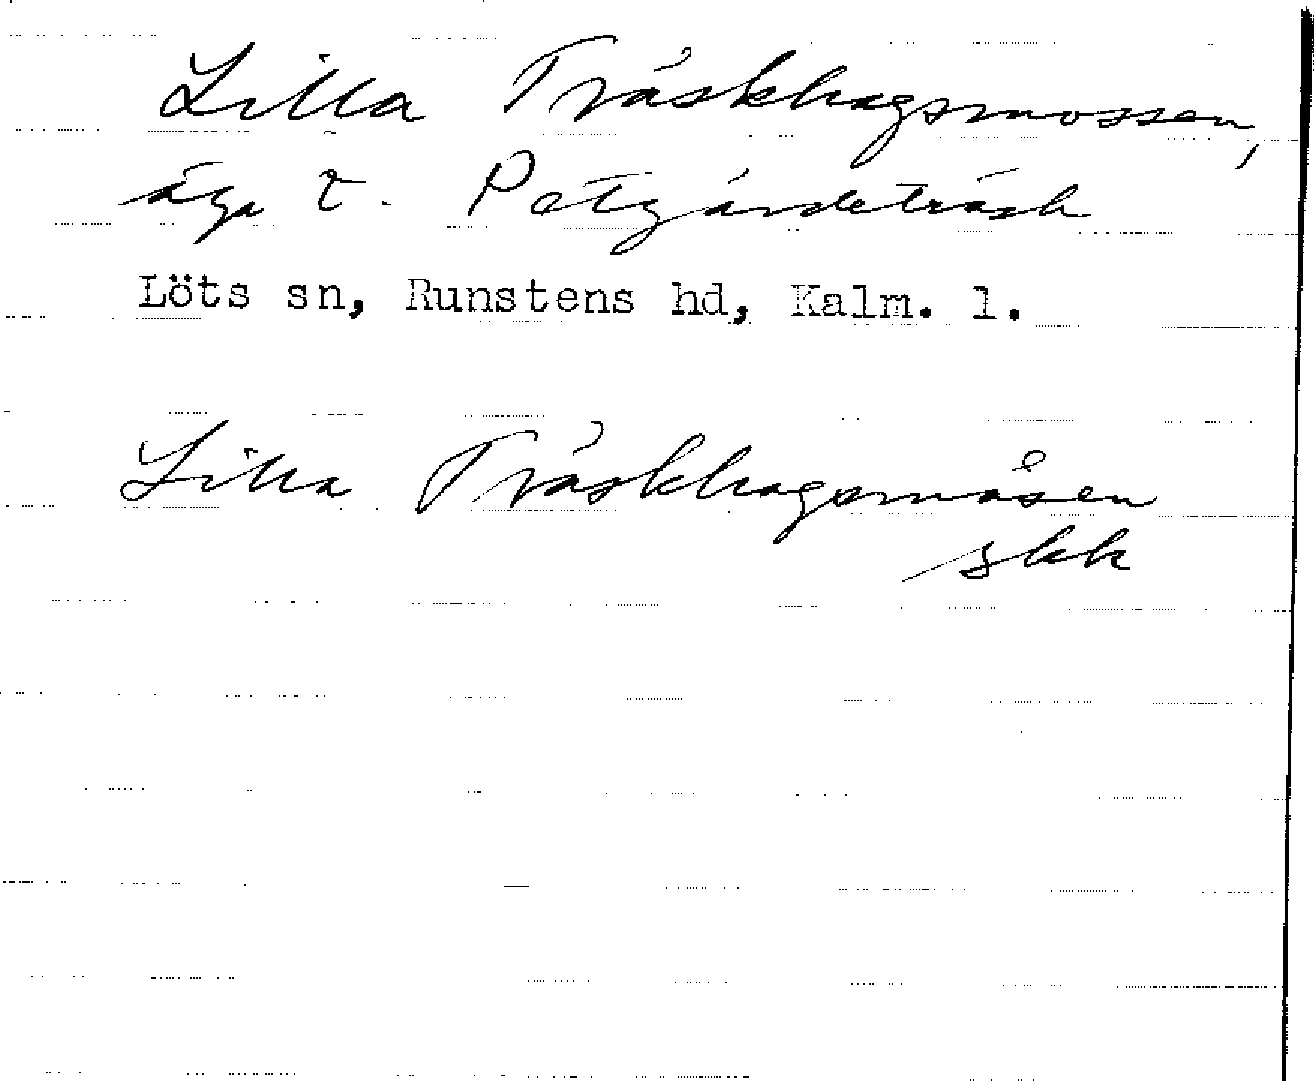 Lilla Träskhagsmossen,
äga t. Petgärdeträsk
Löts sn, Runstens hd, Kalm. l.
Lilla Träskhagsmåsen
skk